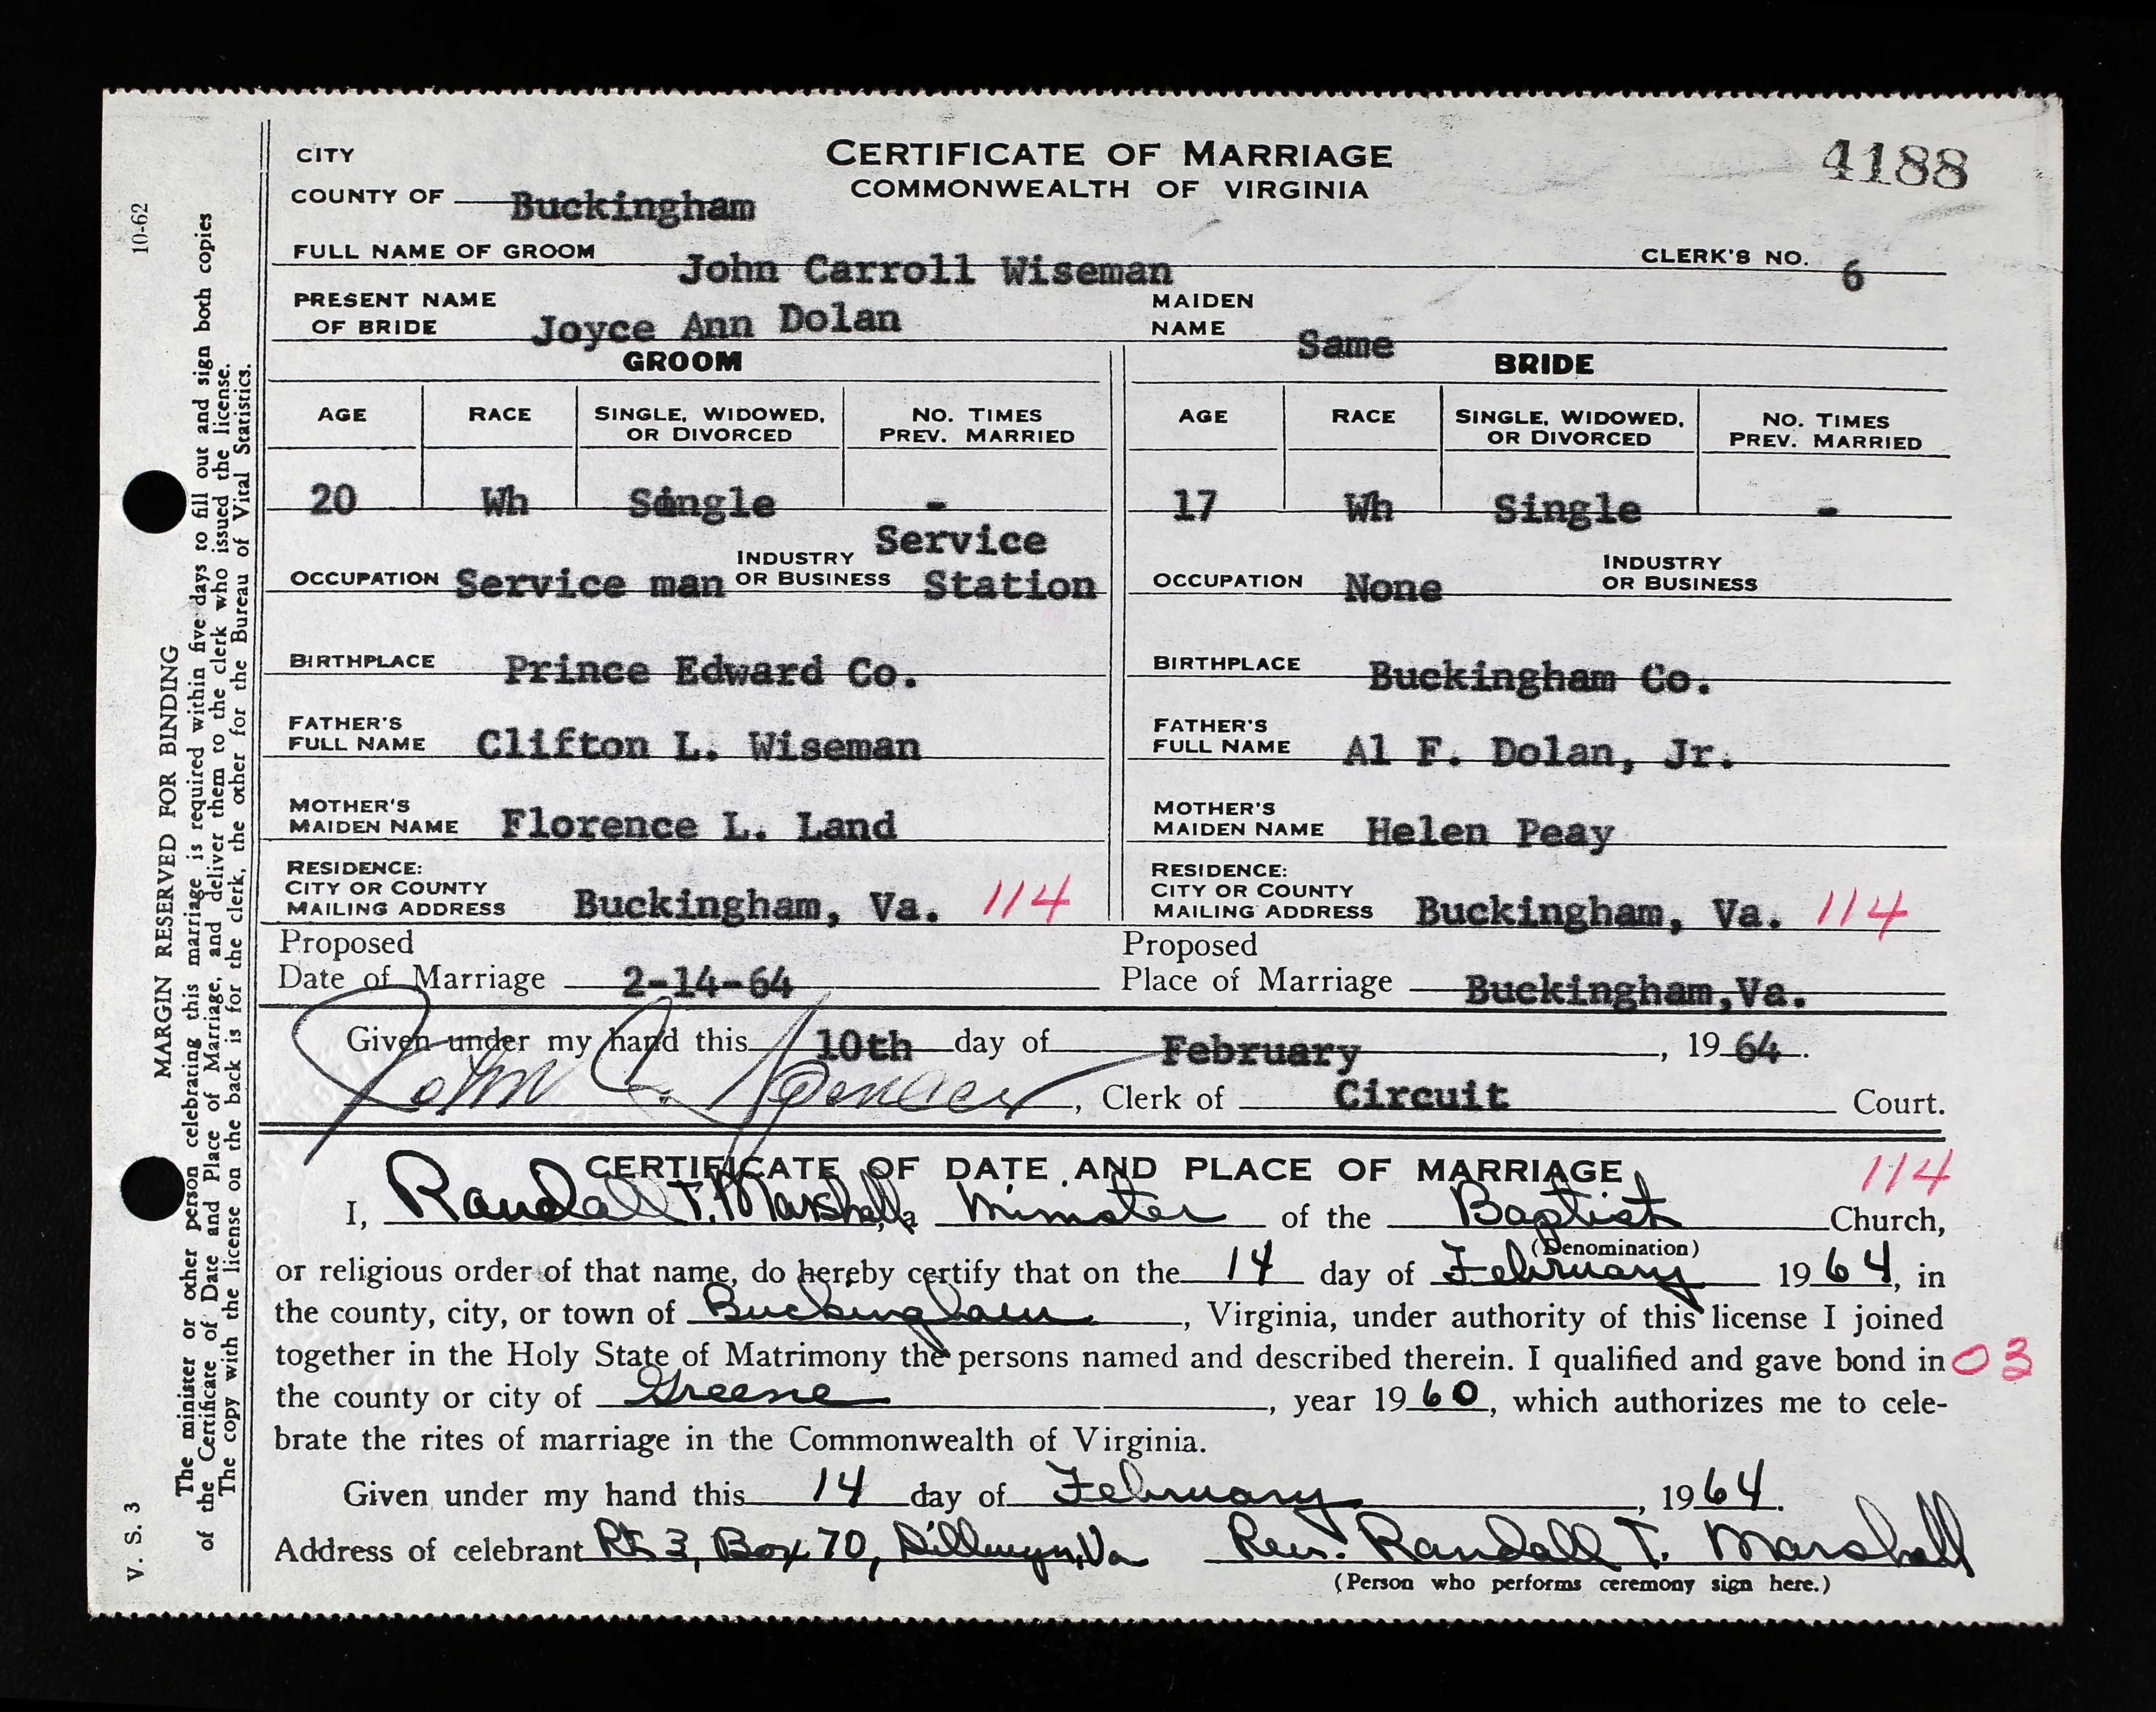 CITY
CERTIFICATE OF MARRIAGE
4188
COUNTY OF Buckingham
COMMONWEALTH OF VIRGINIA
FULL NAME OF GROOM John Carroll Wiseman CLERK'S NO. 6
PRESENT NAME OF BRIDE Joyce Ann Dolan MAIDEN NAME Same
GROOM BRIDE
AGE RACE SINGLE, WIDOWED, OR DIVORCED NO. TIMES PREV. MARRIED AGE RACE SINGLE, WIDOWED, OR DIVORCED NO. TIMES PREV. MARRIED
20 Wh Single - 17 Wh Single -
OCCUPATION Service man INDUSTRY OR BUSINESS Service Station OCCUPATION None INDUSTRY OR BUSINESS
BIRTHPLACE Prince Edward Co. BIRTHPLACE Buckingham Co.
FATHER'S FULL NAME Clifton L. Wiseman FATHER'S FULL NAME Al F. Dolan, Jr.
MOTHER'S MAIDEN NAME Florence L. Land MOTHER'S MAIDEN NAME Helen Peay
RESIDENCE: CITY OR COUNTY MAILING ADDRESS Buckingham, Va. 114 RESIDENCE: CITY OR COUNTY MAILING ADDRESS Buckingham, Va. 114
Proposed Date of Marriage 2-14-64 Proposed Place of Marriage Buckingham,Va.
Given under my hand this 10th day of February, 1964.
John C. Spencer, Clerk of Circuit Court.
CERTIFICATE OF DATE AND PLACE OF MARRIAGE 114
I, Randall T. Marshall, a Minister of the Baptist Church,
(Denomination)
or religious order of that name, do hereby certify that on the 14 day of February 1964, in
the county, city, or town of Buckingham, Virginia, under authority of this license I joined
together in the Holy State of Matrimony the persons named and described therein. I qualified and gave bond in 03
the county or city of Greene, year 1960, which authorizes me to cele-
brate the rites of marriage in the Commonwealth of Virginia.
Given under my hand this 14 day of February, 1964.
Address of celebrant Rt 3, Box 70, Dillwyn, Va Rev. Randall T. Marshall
(Person who performs ceremony sign here.)
10-62
V. S. 3
MARGIN RESERVED FOR BINDING
The minister or other person celebrating this marriage is required within five days to fill out and sign both copies
of the Certificate of Date and Place of Marriage, and deliver them to the clerk who issued the license.
The copy with the license on the back is for the clerk, the other for the Bureau of Vital Statistics.